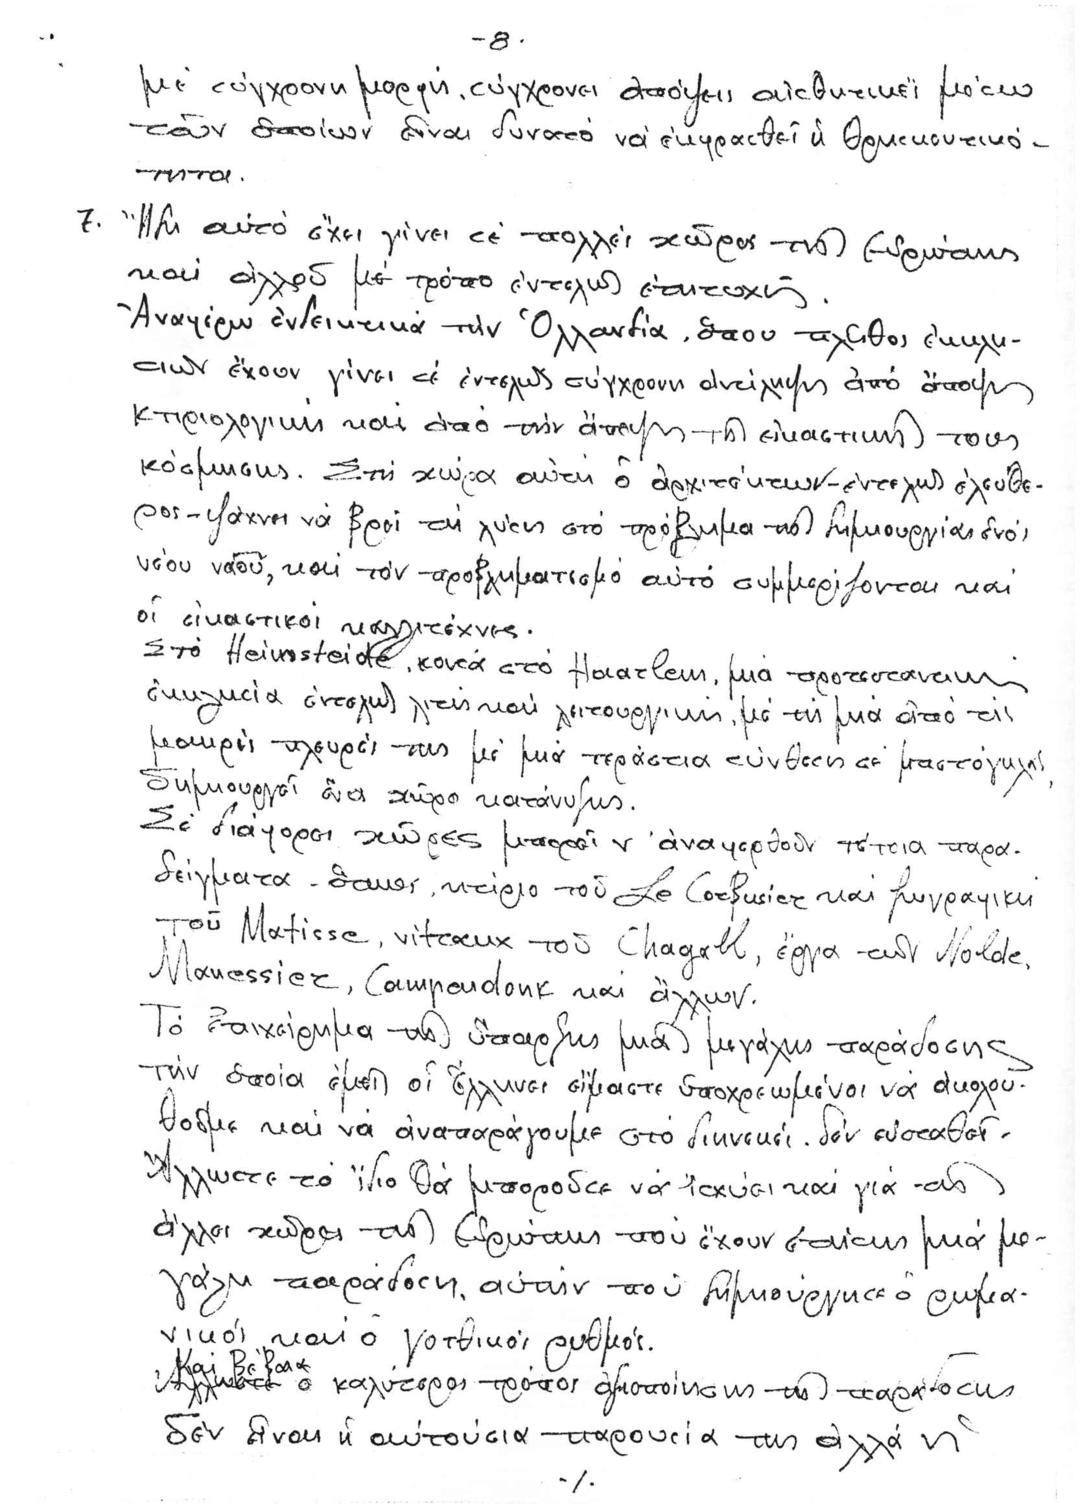 -8.
μέ σύγχρονη μορφή, σύγχρονες ἀπόψεις αἰσθητικές μέσω
τῶν ὁποίων εἶναι δυνατό νά ἐκφρασθεῖ ἡ θρησκευτικό-
τητα.
7. Ἤδη αὐτό ἔχει γίνει σέ πολλές χῶρες τῆς Εὐρώπης
καί ἀλλοῦ μέ τρόπο ἐντελῶς ἐπιτυχῆ.
Ἀναφέρω ἐνδεικτικά τήν Ὁλλανδία, ὅπου πλῆθος ἐκκλη-
σιῶν ἔχουν γίνει σέ ἐντελῶς σύγχρονη ἀντίληψη ἀπό ἄποψη
κτιριολογική καί ἀπό τήν ἄποψη τῆς εἰκαστικῆς τους
κόσμησης. Στή χώρα αὐτή ὁ ἀρχιτέκτων-ἐντελῶς ἐλεύθε-
ρος-ψάχνει νά βρεῖ τή λύση στό πρόβλημα τῆς δημιουργίας ἑνός
νέου ναοῦ, καί τόν προβληματισμό αὐτό συμμερίζονται καί
οἱ εἰκαστικοί καλλιτέχνες.
Στό Heimsteide, κοντά στό Haarlem, μιά προτεσταντική
ἐκκλησία ἐντελῶς λιτή καί λειτουργική, μέ τή μιά ἀπό τίς
μακρές πλευρές της μέ μιά τεράστια σύνθεση σέ μπετόγκλας,
δημιουργεῖ ἕνα χῶρο κατάνυξης.
Σέ διάφορες χῶρες μπορεῖ ν' ἀναφερθοῦν τέτοια παρα-
δείγματα - ὅπως, κτίριο τοῦ Le Corbusier καί ζωγραφική
τοῦ Matisse, vitraux τοῦ Chagall, ἔργα τῶν Nolde,
Manessier, Campendonk καί ἄλλων.
Τό ἐπιχείρημα τῆς ὕπαρξης μιᾶς μεγάλης παράδοσης
τήν ὁποία ἐμεῖς οἱ Ἕλληνες εἴμαστε ὑποχρεωμένοι νά ἀκολου-
θοῦμε καί νά ἀναπαράγουμε στό διηνεκές, δέν εὐσταθεῖ.
Ἄλλωστε τό ἴδιο θά μποροῦσε νά ἰσχύσει καί γιά τίς
ἄλλες χῶρες τῆς Εὐρώπης πού ἔχουν ἐπίσης μιά με-
γάλη παράδοση, αὐτήν πού δημιούργησε ὁ ρωμα-
νικός καί ὁ γοτθικός ρυθμός.
Καί βέβαια
ὁ καλύτερος τρόπος ἀξιοποίησης τῆς παράδοσης
δέν εἶναι ἡ αὐτούσια παρουσία της ἀλλά ἡ
-/.